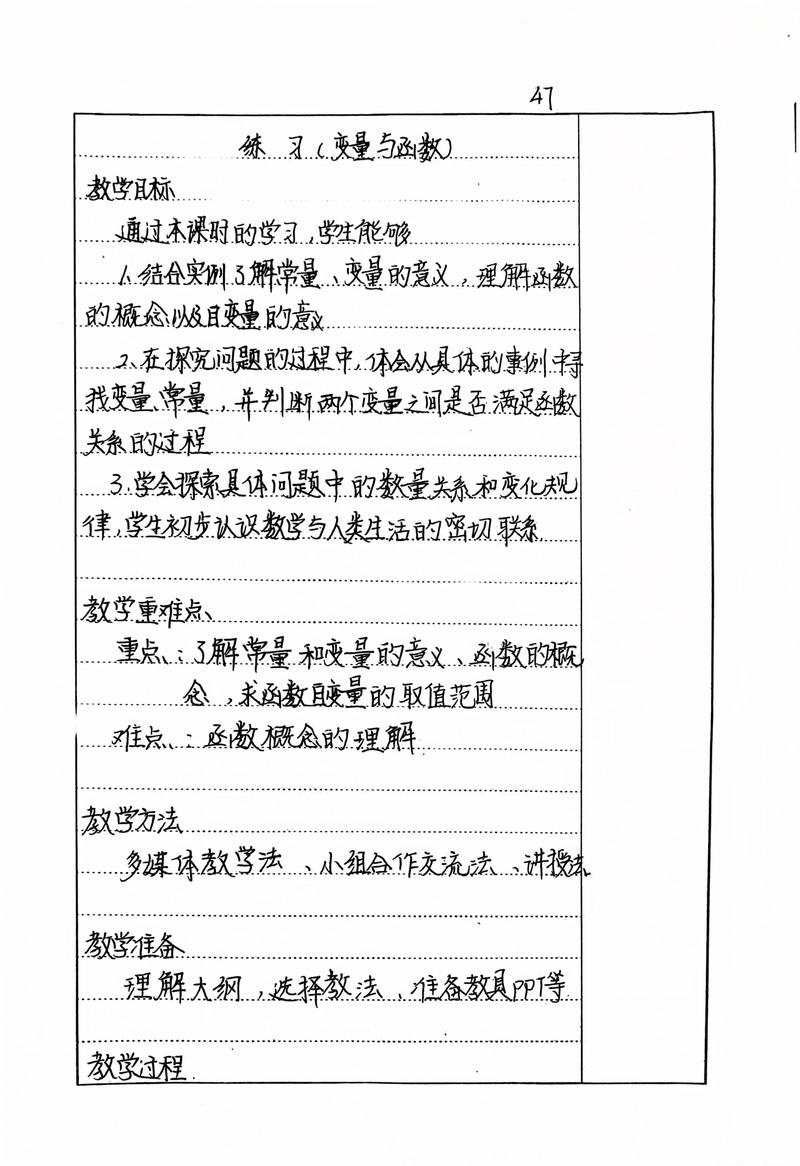 47
练 习（变量与函数）
教学目标
通过本课时的学习，学生能够
1、结合实例了解常量、变量的意义，理解函数
的概念以及自变量的意义
2、在探究问题的过程中，体会从具体的事例中寻
找变量、常量，并判断两个变量之间是否满足函数
关系的过程
3.学会探索具体问题中的数量关系和变化规
律，学生初步认识数学与人类生活的密切联系.
教学重难点、
重点、：了解常量和变量的意义、函数的概
念，求函数自变量的取值范围
难点、：函数概念的理解
教学方法
多媒体教学法、小组合作交流法、讲授法
教学准备
理解大纲，选择教法、准备教具PPT等
教学过程